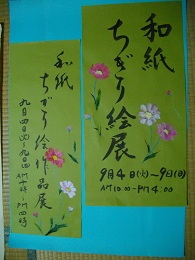 和紙
ちぎり絵展
9月4日(火)〜9日(日)
AM10:00-PM4:00
和紙
ちぎり絵作品展
九月四日(火)〜九日
AM十時〜PM四時